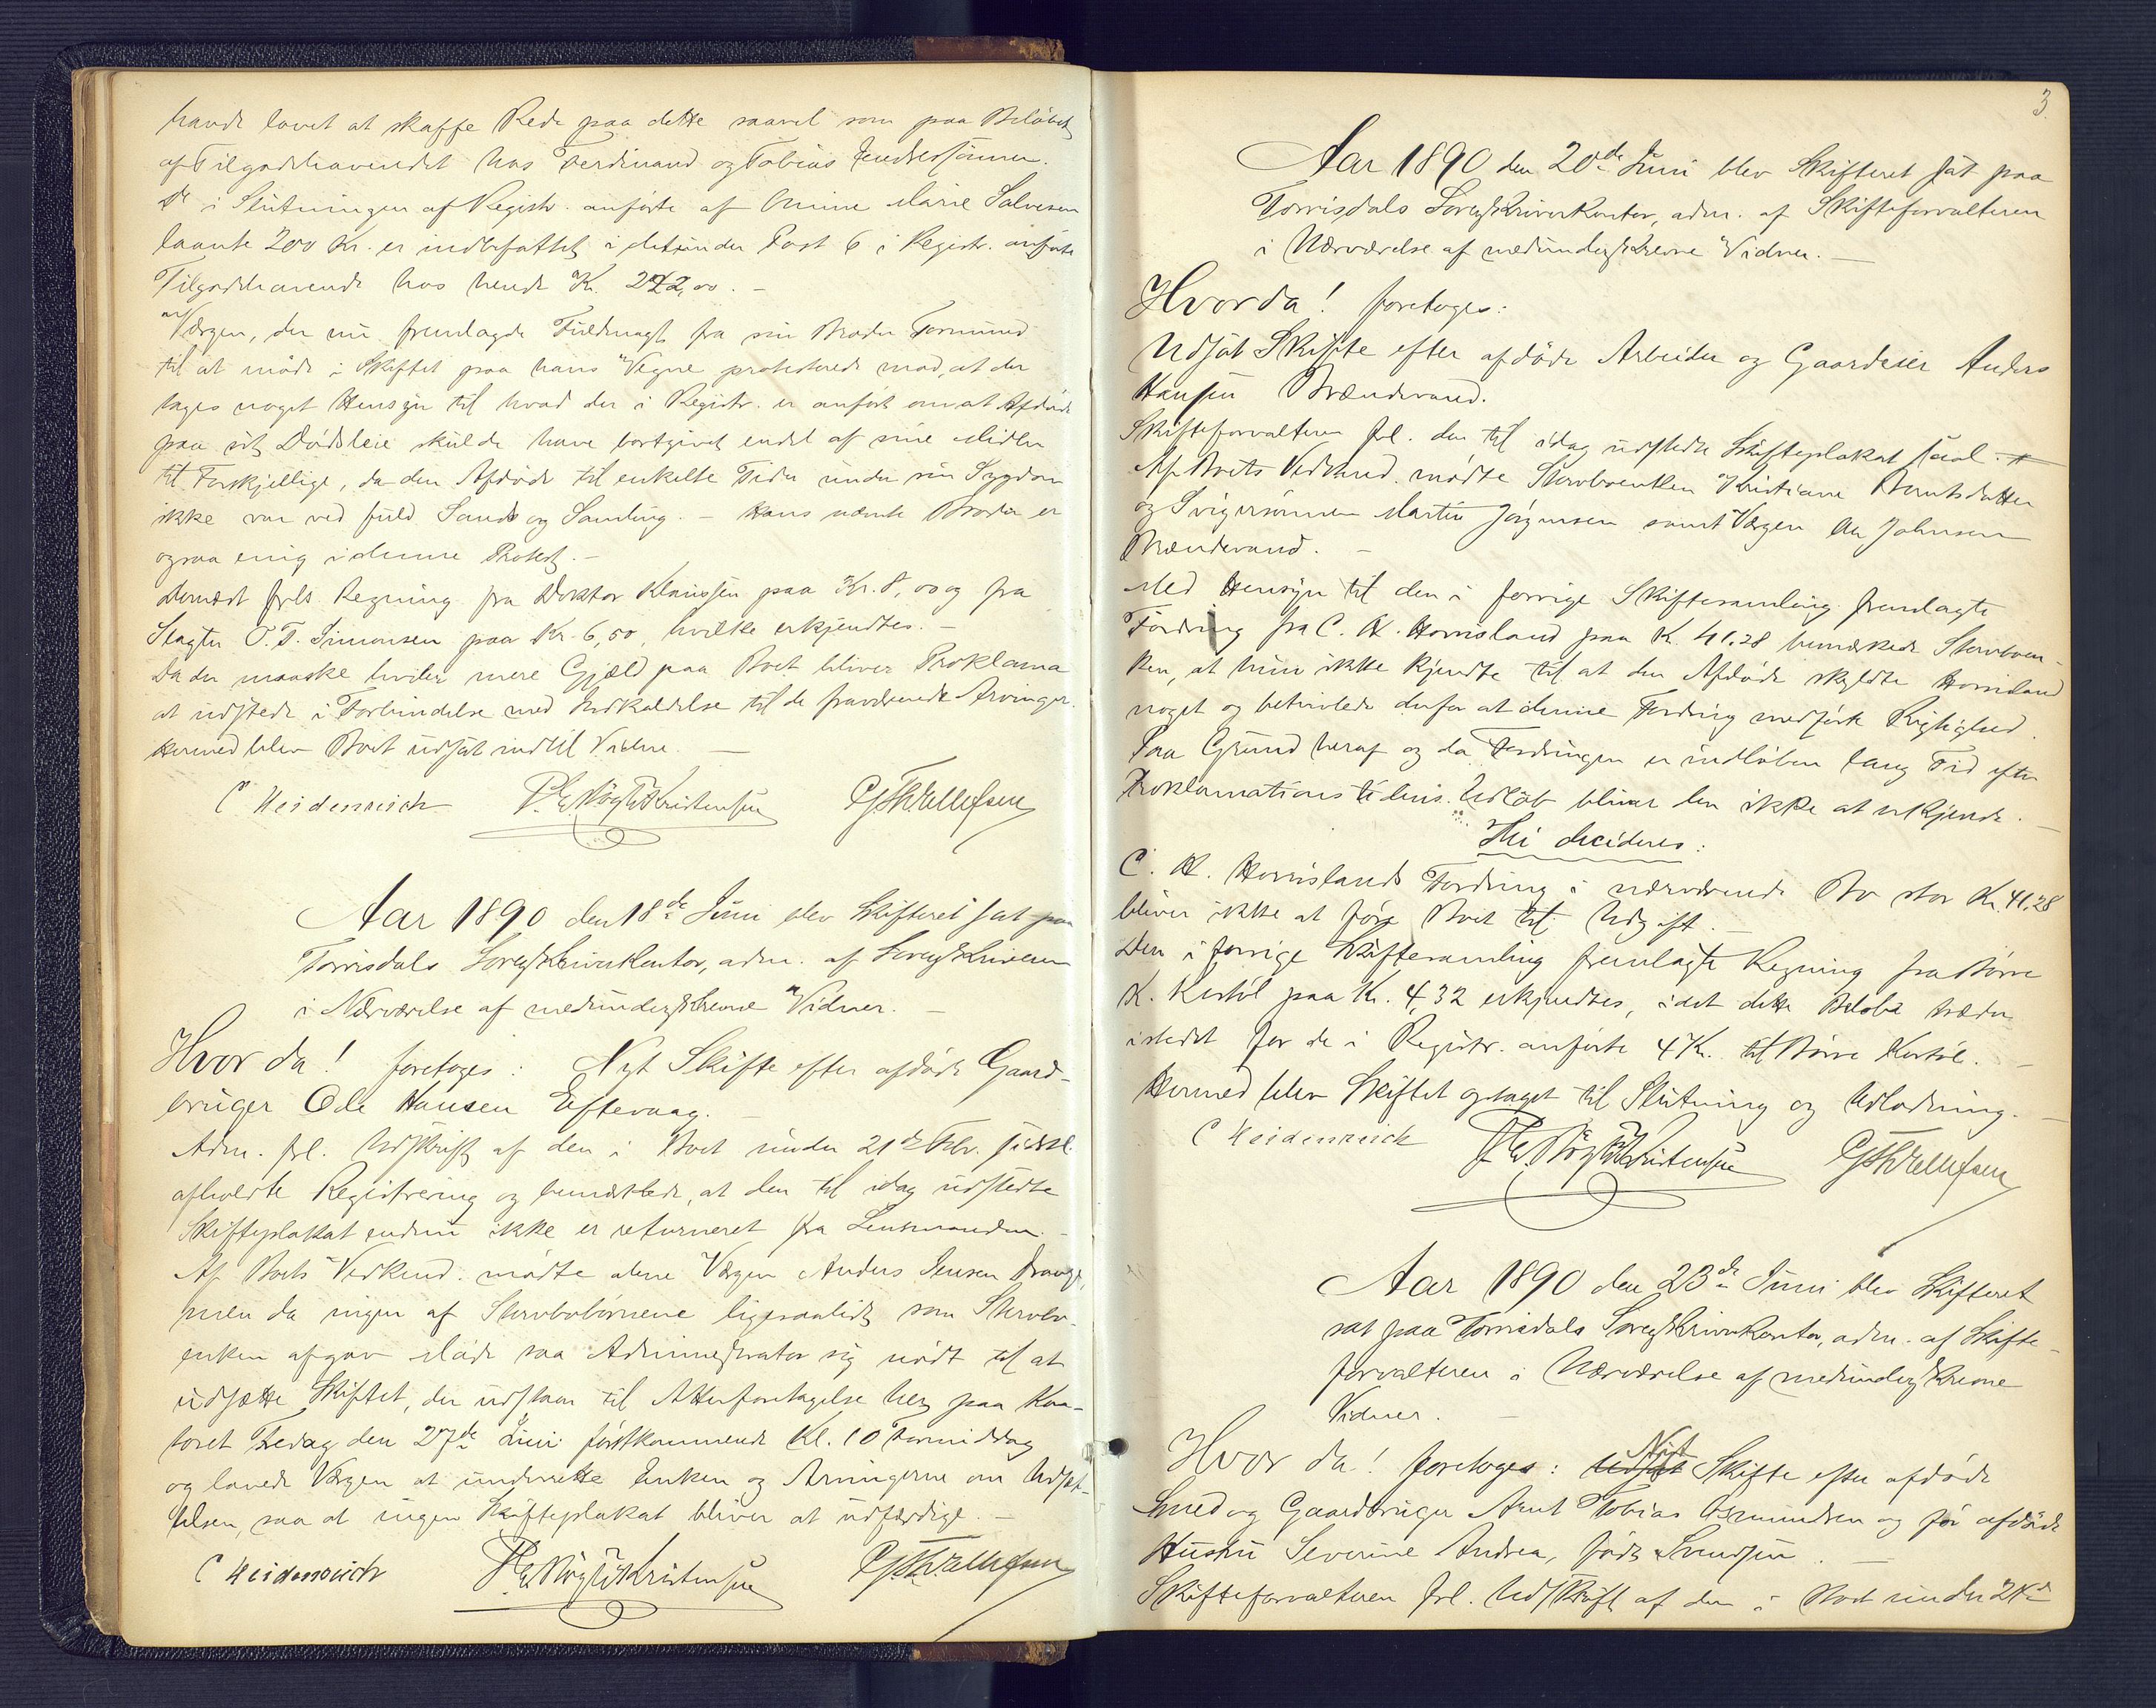 havde lovet at skaffe Rede paa dette saavel som paa Beløbet
af Tilgodehavendet hos Ferdinand og Tobias
De i Slutningen af Registr. anførte af Marie Salvesen
laante 200 Kr. er indbefattet i det under Post 6 i Registr. anførte
Tilgodehavende hos hende Kr.
Værgen, der nu fremlagde Fuldmagt fra sin Broder Tormund
til at møde i Skiftet paa hans Vegne protesterede mod, at der
tages noget Hensyn til hvad der i Registr. er anført om at Afdøde
paa sit Dødsleie skulde have bortgivet endel af sine Midler
til Forskjellige, da den Afdøde til enkelte Tider under sin Sygdom
ikke var ved fuld Sands og Samling. – Hans nævnte Broder er
ogsaa enig i denne Protest. –
Dernæst frls. Regning fra Doktor Klaussen paa Kr. 8,00 og fra
Slagter O. T. Simonsen paa Kr. 6,50, hvilke erkjendtes. –
Da der maaske hviler mere Gjæld paa Boet bliver Proklama
at udstede i Forbindelse med Indkaldelse til de fraværende Arvinger.
Hermed blev Boet udsat indtil Videre. –
C Heidenreich
Aar 1890 den 18de Juni blev Skifteret sat paa
Torrisdals Sorenskriverkontor, adm. af Sorenskriveren
i Nærværelse af medunderskrevne Vidner. –
Hvor da! foretoges: Nyt Skifte efter afdøde Gaard-
bruger Ole Hansen Eftevaag. –
Adm. frl. Udskrift af den i Boet under 21de Febr. sidstl.
afholdte Registrering og bemærkede, at den til idag udstedte
Skifteplakat endnu ikke er returneret fra Lensmanden. –
Af Boets Vedkmd. mødte alene Værgen Anders Jensen Drange,
men da ingen af Stervbobørnene ligesaalidt som Stervbo-
enken afgav Møde saa Administrator sig nødt til at
udsætte Skiftet, der udstaar til Atterforetagelse her paa Kon-
toret Fredag den 27de Juni førstkommende Kl. 10 Formiddag
og lovede Værgen at underrette Enken og Arvingerne om Udsæt-
telsen, saa at ingen Skifteplakat bliver at udfærdige. –
C Heidenreich
3.
Aar 1890 den 20de Juni blev Skifteret sat paa
Torrisdals Sorenskriverkontor, adm. af Skifteforvalteren
i Nærværelse af medunderskrevne Vidner. –
Hvor da! foretoges:
Udsat Skifte efter afdøde Arbeider og Gaardeier Anders
Hansen Brændevand.
Skifteforvalteren frl. den til idag udstedte Skifteplakat saal.
Af Boets Vedkmd. mødte Stervboenken Kristiane Berntsdatter
og Svigersønnen Martin Jørgensen samt Værgen Johnsen
Brændevand. –
Med Hensyn til den i forrige Skiftesamling fremlagte
Fordring fra C. H. Hornsland paa Kr. 41,28 bemærkede Stervboen-
ken, at hun ikke kjendte til at den Afdøde skyldte Hornsland
noget og betvivlede derfor at denne Fordring medførte Rigtighed.
Paa Grund heraf og da Fordringen er indløben lang Tid efter
Proklamationstidens Udløb bliver den ikke at erkjende. –
Thi decideres:
C. H. Hornslands Fordring i nærværende Bo stor Kr. 41,28
bliver ikke at føre Boet til Udgift. –
Den i forrige Skiftesamling fremlagte Regning fra Børre
K. Kostøl paa Kr. 4,32 erkjendtes, idet dette Beløb træder
istedet for de i Registr. anførte 4 Kr. til Børre Kostøl. –
Hermed blev Skiftet optaget til Slutning og Udlodning. –
C Heidenreich
Aar 1890 den 23de Juni blev Skifteret
sat paa Torrisdals Sorenskriverkontor, adm. af Skifte-
forvalteren i Nærværelse af medunderskrevne
Vidner. –
Hvor da! foretoges: Udsat Nyt Skifte efter afdøde
Smed og Gaardbruger Arnt Tobias Osmundsen og før afdøde
Hustru Severine Andrea, født Svendsen. –
Skifteforvalteren frl. Udskrift af den i Boet under